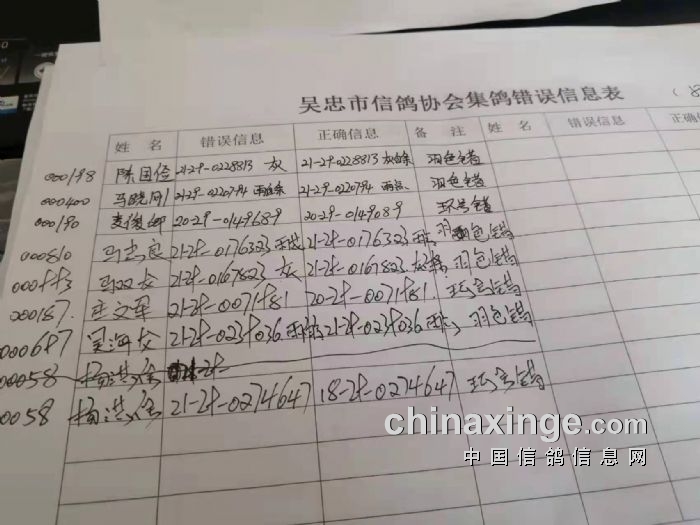 吴忠市信鸽协会集鸽错误信息表
姓 名 错误信息 正确信息 备 注 姓 名 错误信息 正确信息
000198 陈国俭 21-29-0228813 灰 21-29-0228813 羽色错
000400 马晓刚 21-29-0220794 21-29-0220794 羽色错
000190 20-29-0149689 20-29-0149089 环号错
000810 马志良 21-29-0176323 21-29-0176323 羽色错
马双 21-29-0167823 灰 21-29-0167823 羽色错
000187 文军 21-29-0071981 20-29-0071981 环号错
000697 吴海 21-29-0239036 21-29-0239036 羽色错
00058 杨洪
0058 杨洪 21-29-0274647 18-29-0274647 环号错
chinaxinge.com
中国信鸽信息网